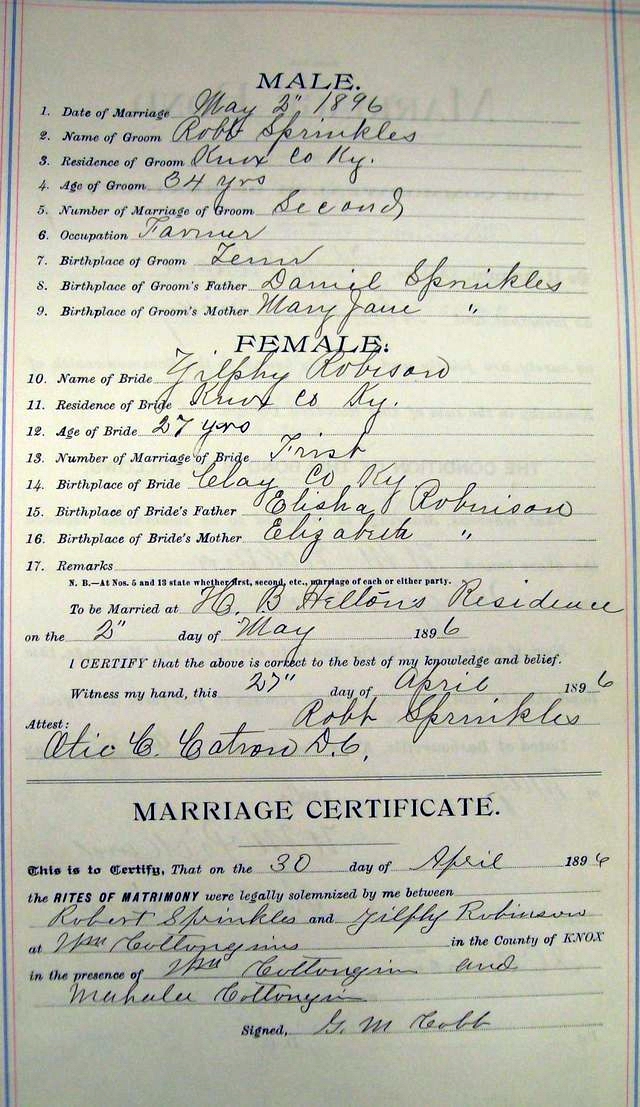 MALE.
1. Date of Marriage May 2" 1896
2. Name of Groom Robt Sprinkles
3. Residence of Groom Knox Co Ky.
4. Age of Groom 34 yrs
5. Number of Marriage of Groom Second
6. Occupation Farmer
7. Birthplace of Groom Tenn
8. Birthplace of Groom's Father Daniel Sprinkles
9. Birthplace of Groom's Mother Mary Jane "
FEMALE.
10. Name of Bride Zilphy Robison
11. Residence of Bride Knox Co Ky.
12. Age of Bride 27 yrs
13. Number of Marriage of Bride Frist
14. Birthplace of Bride Clay Co Ky
15. Birthplace of Bride's Father Elisha Robinison
16. Birthplace of Bride's Mother Elizabeth "
17. Remarks
N. B.—At Nos. 5 and 13 state whether first, second, etc., marriage of each or either party.
To be Married at H. B Hellon's Residence
on the 2" day of May 1896
I CERTIFY that the above is correct to the best of my knowledge and belief.
Witness my hand, this 27" day of April 1896
Robt Sprinkles
Attest:
Otic C. Catron D.C.
MARRIAGE CERTIFICATE.
This is to Certify, That on the 30 day of April 1896
the RITES OF MATRIMONY were legally solemnized by me between
Robert Sprinkles and Zilphy Robinson
at Wm Cottongims in the County of KNOX
in the presence of Wm Cottongim and
Mahala Cottongim
Signed, G. M Cobb